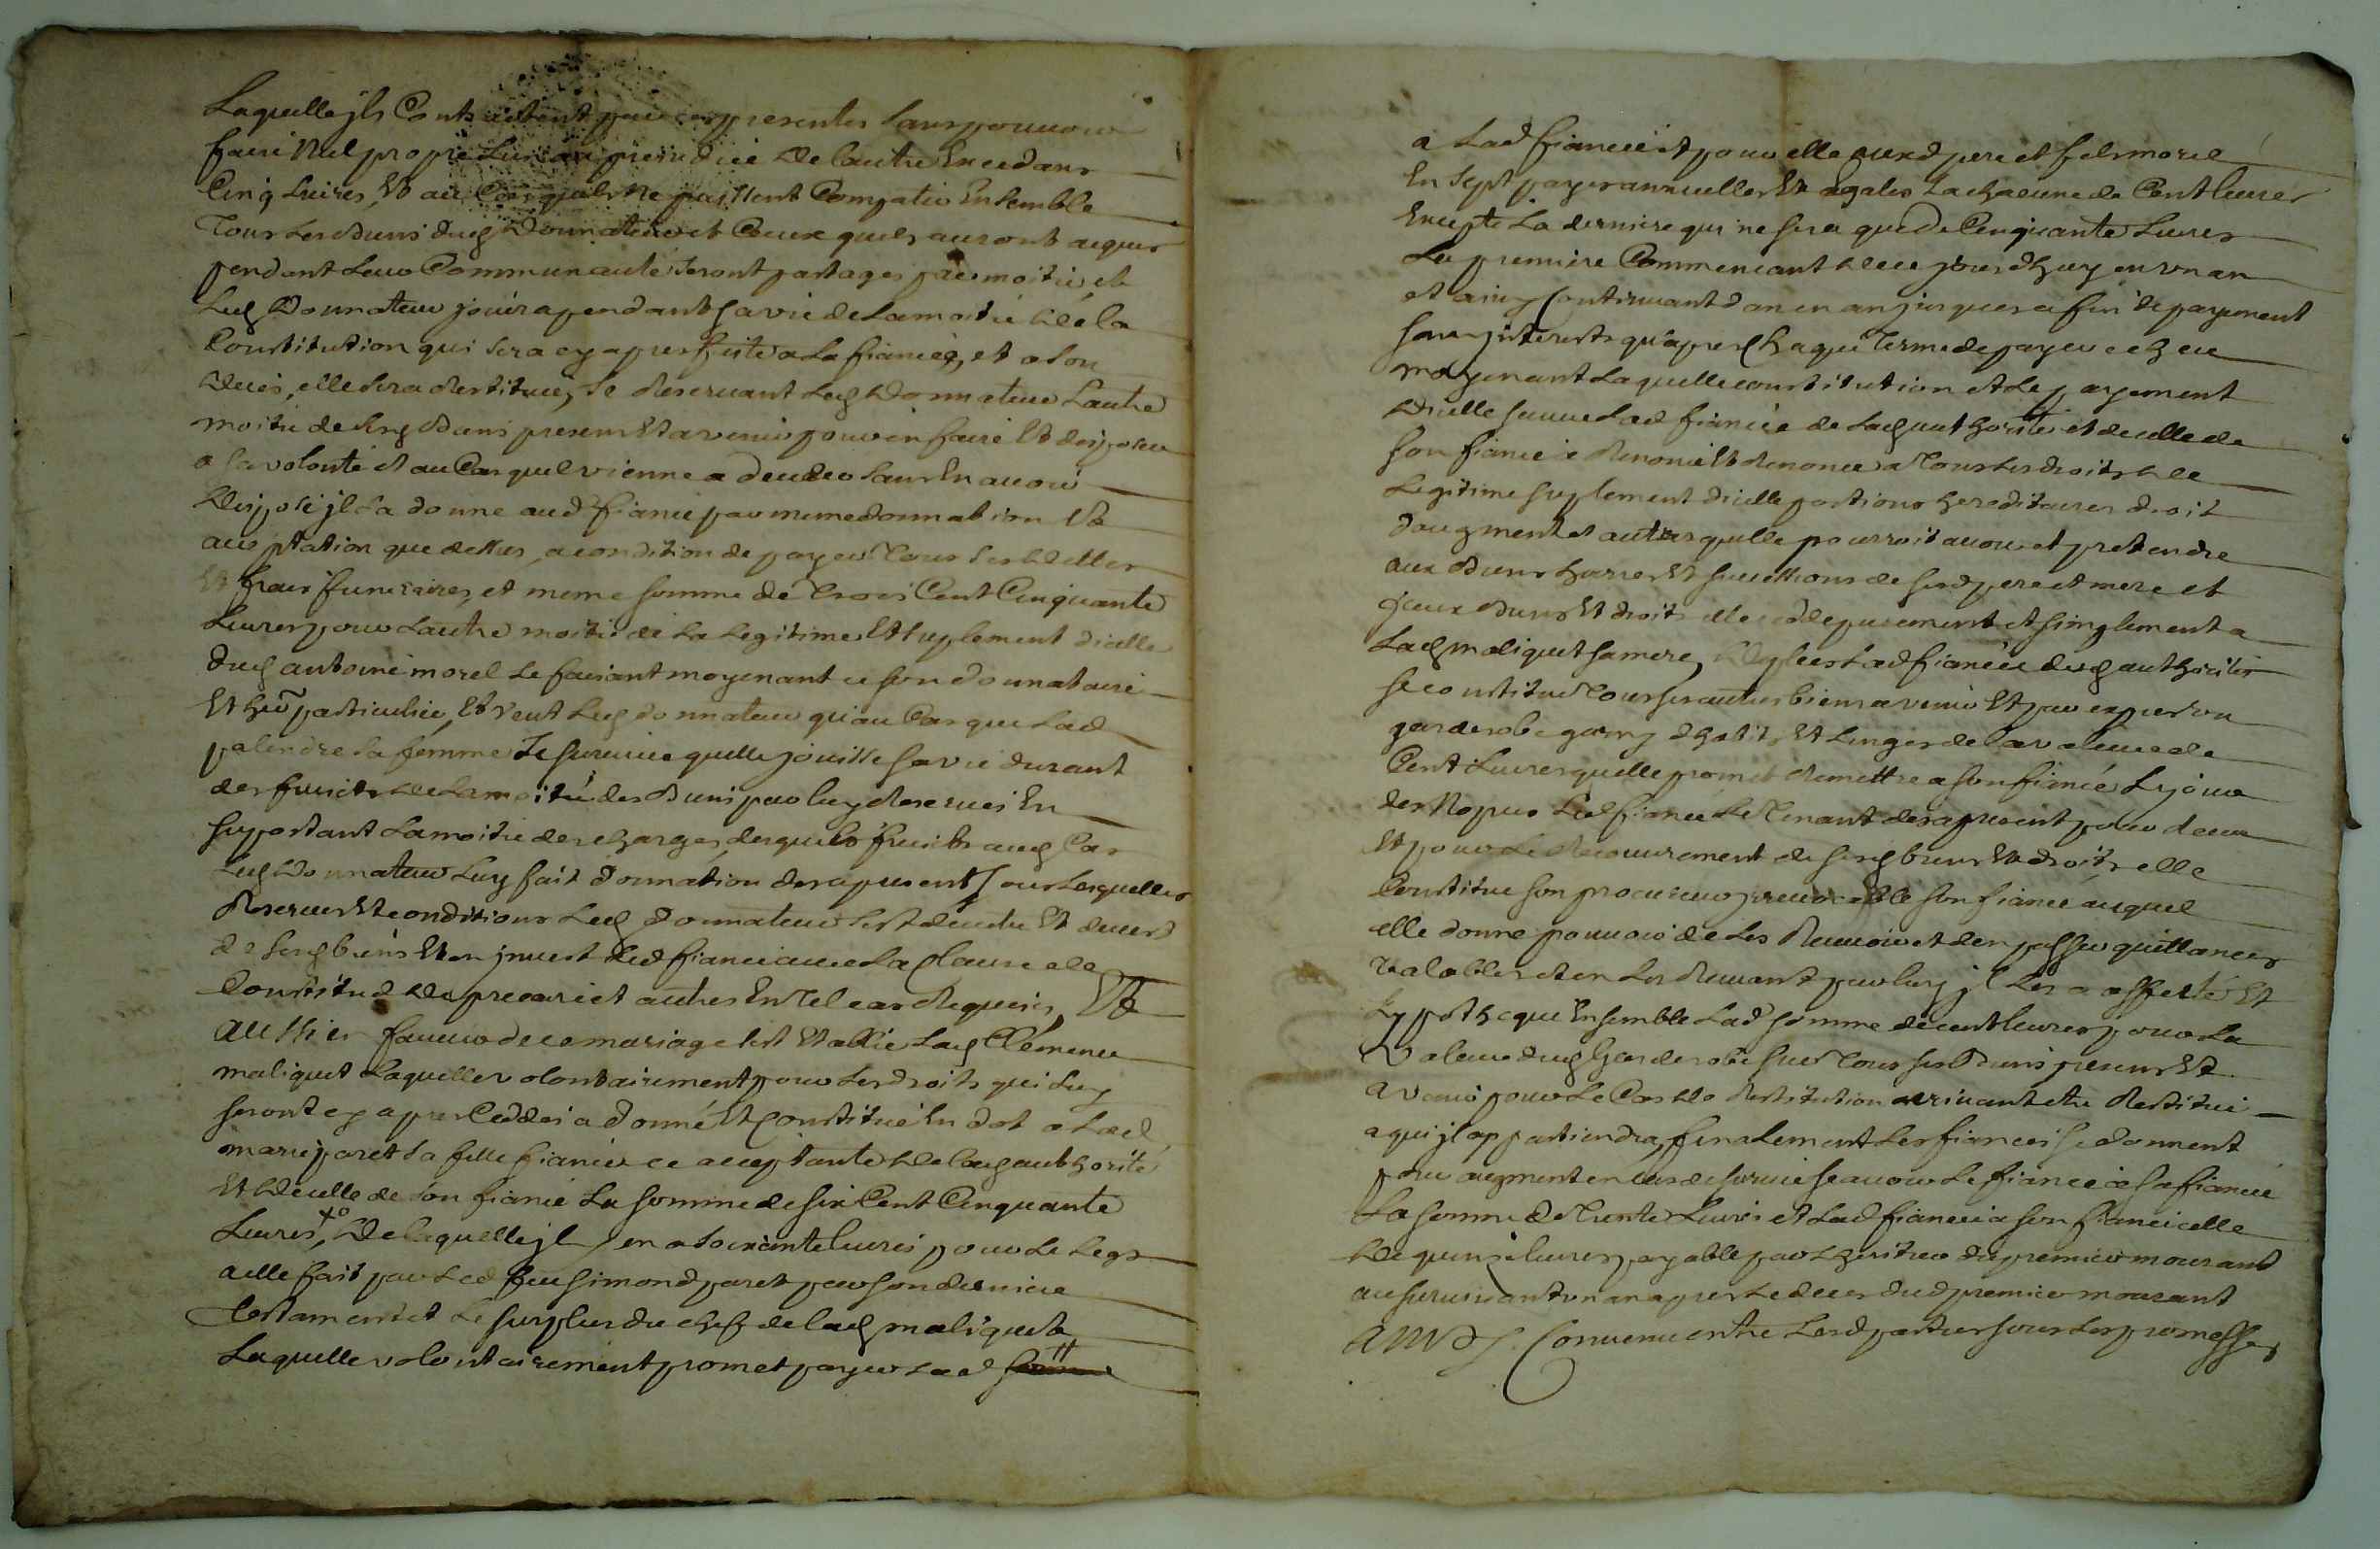 Laquelle jls Contractent par ces presentes sans pouvoir
faire Nul propre lun au prejudice de lautre Excedant
Cinq livres, Et au Cas quils ne puissent Compatir Ensemble
Tous les Biens dud Donnateur et Ceux quils auront acquis
pendant leur Communauté seront partages par moitié, et
led Donnateur jouira pendant sa vie de la moitié de la
Constitution qui sera cy apres faite a la fiancée, et a son
deces, elle sera Restituée, se Reservant led Donnateur Lautre
moitié de sesd Biens presens Et avenir pour en faire Et disposer
a sa volonté et au Cas quil vienne a deceder sans En avoir
disposé jl la donne aud fiancé par meme donnation Et
acceptation que dessus, a condition de payer Tous ses dettes
Et frais funeraires, et meme somme de Trois Cent Cinquante
Livres pour Lautre moitié de la Legitime Et suplement dicelle
dud antoine morel le faisant moyenant ce son donnataire
Et her particulier, Et Veut led donnateur qu'au Cas que Lad
palendre sa femme Le survive quelle jouisse sa vie durant
des fruits de la moitié des Biens par luy Reservés En
suportant la moitié des charges, desquels fruits aud Cas
led Donnateur Luy fait donnation des a present sous Lesquelles
Reserves Et conditions led donnateur sest devetu Et devest
de sesd biens Et en jnvest led fiancé avec la Clause de
Constitut de precaire et autres En Tel cas Requises, Et
aussi en faveur de ce mariage sest Etablie lad Clémence
maliquet Laquelle volontairement pour les droits qui luy
seront cy apres Ceddés a donné Et Constitué En dot a lad
marie paret sa fille fiancée ce acceptante de lad authorité
Et de celle de son fiancé La somme de six Cent Cinquante
Livres, de laquelle jl y en a soixante livres pour le Legs
a elle fait par led feu simond paret par son dernier
Testament et le surplus du chef de lad maliquet
Laquelle volontairement promet payer Lad
a Lad fiancée et pour elle auxd pere et fils morel
En sept payes annuelles Et egales La chacune de Cent livres
Excepté La derniere qui ne sera que de Cinquante Livres
La premiere Commencant de ce jourdhuy en un an
et ainsy Continuant dan en an jusques a fin de payement
sans jnterests qu'apres Chaque Terme de paye echeu
moyenant Laquelle constitution et Le payement
dicelle sauve Lad fiancée de lad authorité et de celle de
son fiancé a Renoncé Et Renonce a Tous les droits de
Legitime suplement dicelle portions hereditaires droit
daugment et autres quelle pourroit avoir et pretendre
aux Biens hoires Et successions de sesd pere et mere et
jceux Biens Et droits elle cedde purement et simplement a
Lad maliquet sa mere, de plus Lad fiancée desd authorités
se constitue Tous ses autres biens avenir Et par expres un
garderobe garny dhabits Et Linges de la valeur de
Cent Livres quelle promet Remettre a son fiancé Le jour
des Nopces Led fiancé le Tenant des a present pour receu
Et pour Le Recouvrement de sesd biens Et droits elle
Constitue son procureur jrrevocable son fiancé auquel
elle donne pouvoir de les Recevoir et den passer quittances
valables et en les Recevant par luy jl les a affecté Et
hypotheque Ensemble Lad somme de cent livres pour La
valeur dud garderobe sur Tous ses Biens presens Et
avenir pour Le Cas de Restitution arrivant etre Restitué
a qui jl appartiendra, finalement Les fiancés se donnent
par augment en cas de survie scavoir Le fiancé a sa fiancée
La somme de Trente Livres et Lad fiancée a son fiancé celle
de quinze livres payable par Lheritier du premier mourant
au survivant un an apres Le deces dud premier mourant
ainsy Convenu entre Lesd parties sous les promesses